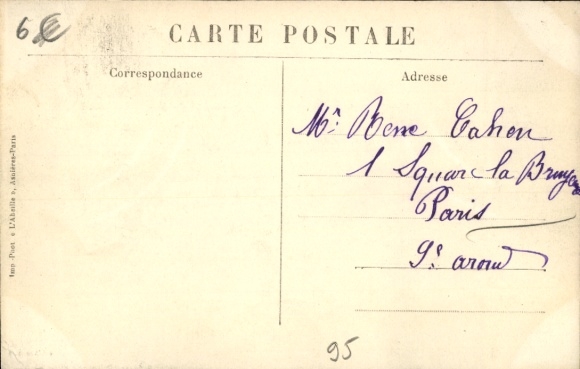 6€
CARTE POSTALE
Correspondance
Adresse
Mr. Rene Cahen
1 Square la Bruyere
Paris
9e arond
Imp. Phot. « L'Abeille », Asnières-Paris
95